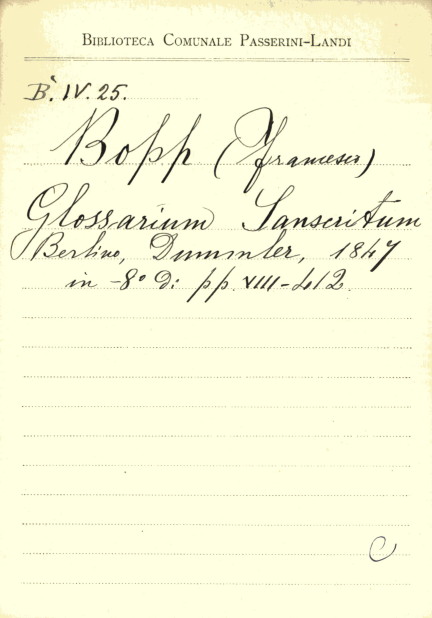 BIBLIOTECA COMUNALE PASSERINI-LANDI
B. IV. 25.
Bopp (Francesco)
Glossarium Sanscritum
Berlino, Dummler, 1847
in -8° di pp. VIII-412.
C